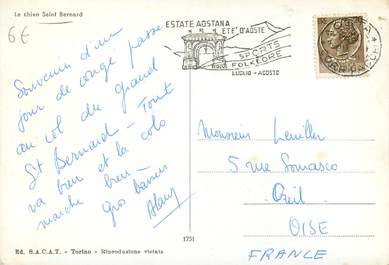 Le chien Saint Bernard
6€
ESTATE AOSTANA
ETE' D'AOSTE
SPORTS
FOLKLORE
LUGLIO - AGOSTO
Souvenir d'un
jour de congé passé
au col du Grand
St Bernard - Tout
va bien et la colo
marche bien -
gros baisers
Alain
Monsieur
5 rue
Creil
OISE
FRANCE
1751
Ed. S.A.C.A.T. - Torino - Riproduzione vietata